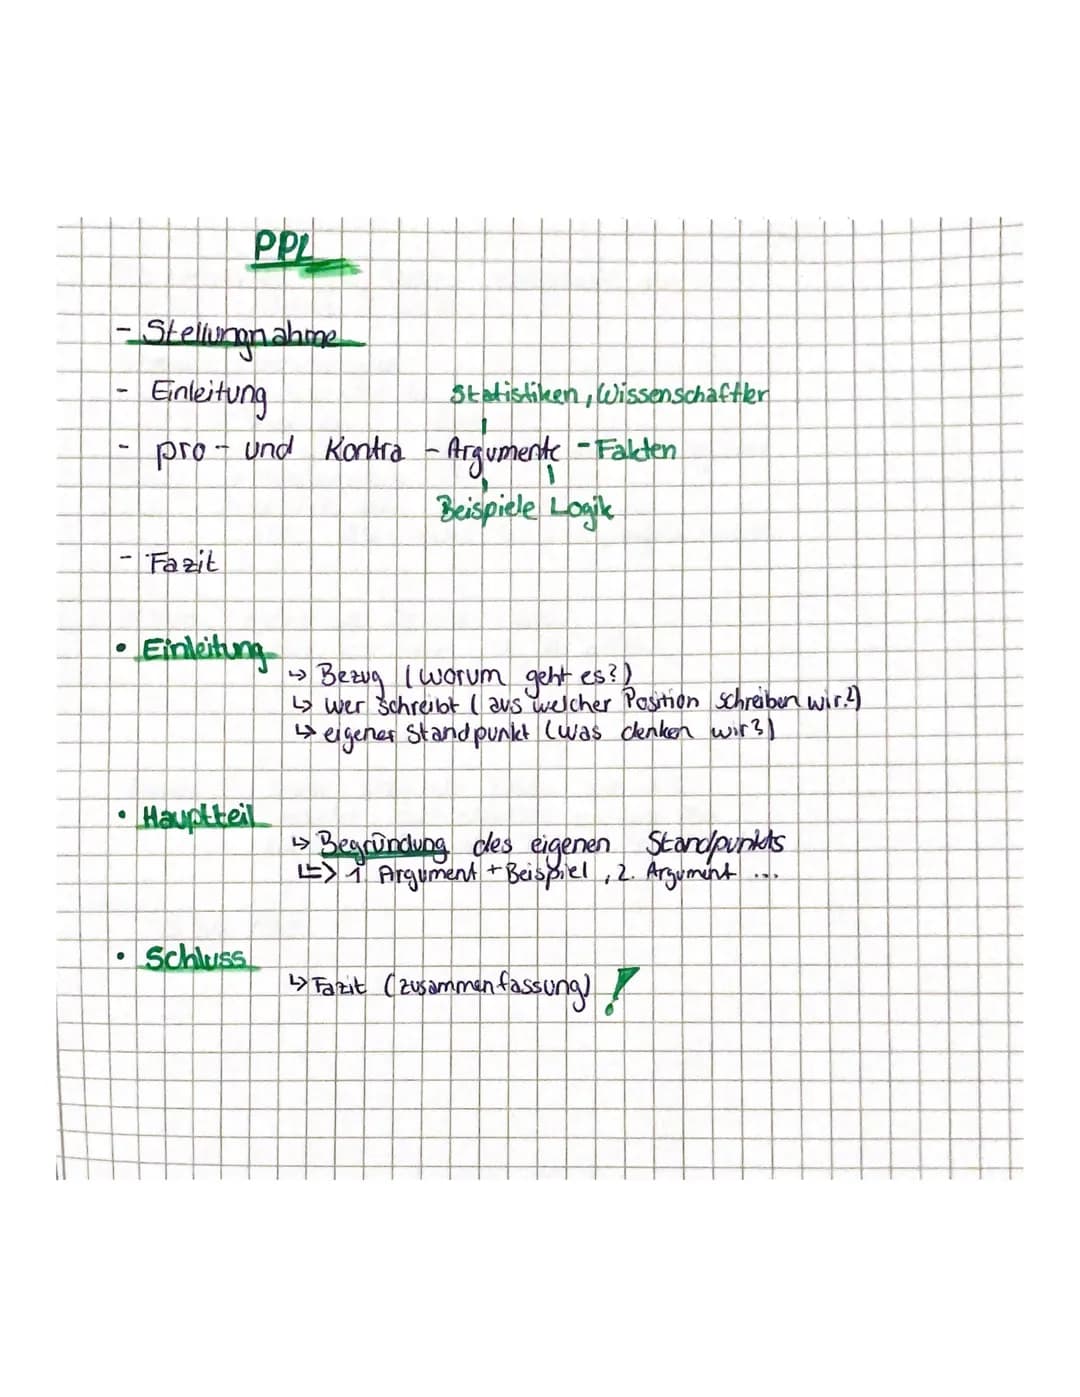 PPL
- Stellungnahme
- Einleitung
Statistiken, Wissenschaftler
- pro- und Kontra - Argumente - Fakten
Beispiele Logik
- Fazit
• Einleitung
↳ Bezug (worum geht es?)
↳ wer schreibt (aus welcher Position schreiben wir?)
↳ eigener Standpunkt (was denken wir?)
• Hauptteil
↳ Begründung des eigenen Standpunkts
↳> 1 Argument + Beispiel, 2. Argument ...
• Schluss
↳ Fazit (zusammenfassung) !